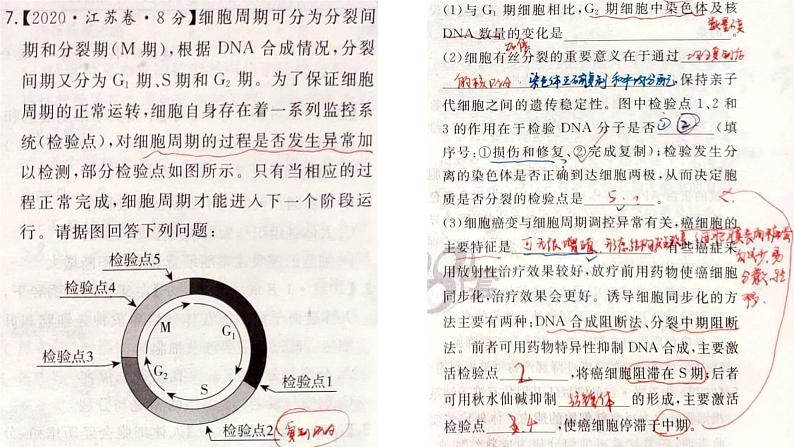 7.【2020·江苏卷·8分】细胞周期可分为分裂间
期和分裂期(M 期),根据 DNA 合成情况,分裂
间期又分为 G₁ 期、S 期和 G₂ 期。为了保证细胞
周期的正常运转,细胞自身存在着一系列监控系
统(检验点),对细胞周期的过程是否发生异常加
以检测,部分检验点如图所示。只有当相应的过
程正常完成,细胞周期才能进入下一个阶段运
行。请据图回答下列问题:
检验点5
检验点4
M
G₁
检验点3
G₂
S
检验点1
检验点2
复制DNA
(1)与 G₁ 期细胞相比,G₂ 期细胞中染色体及核
DNA 数量的变化是
数量不变
加倍
(2)细胞有丝分裂的重要意义在于通过
的核DNA 染色体正确复制和平均分配,保持亲子
代细胞之间的遗传稳定性。图中检验点 1、2 和
3 的作用在于检验 DNA 分子是否 ① ② (填
序号:①损伤和修复、②完成复制);检验发生分
离的染色体是否正确到达细胞两极,从而决定胞
质是否分裂的检验点是 5 。
(3)细胞癌变与细胞周期调控异常有关,癌细胞的
主要特征是 可无限增殖 有些癌症采
用放射性治疗效果较好,放疗前用药物使癌细胞
同步化,治疗效果会更好。诱导细胞同步化的方
法主要有两种:DNA 合成阻断法、分裂中期阻断
法。前者可用药物特异性抑制 DNA 合成,主要激
活检验点 2 ,将癌细胞阻滞在 S 期;后者
可用秋水仙碱抑制 纺锤体 的形成,主要激活
检验点 4 ,使癌细胞停滞于中期。